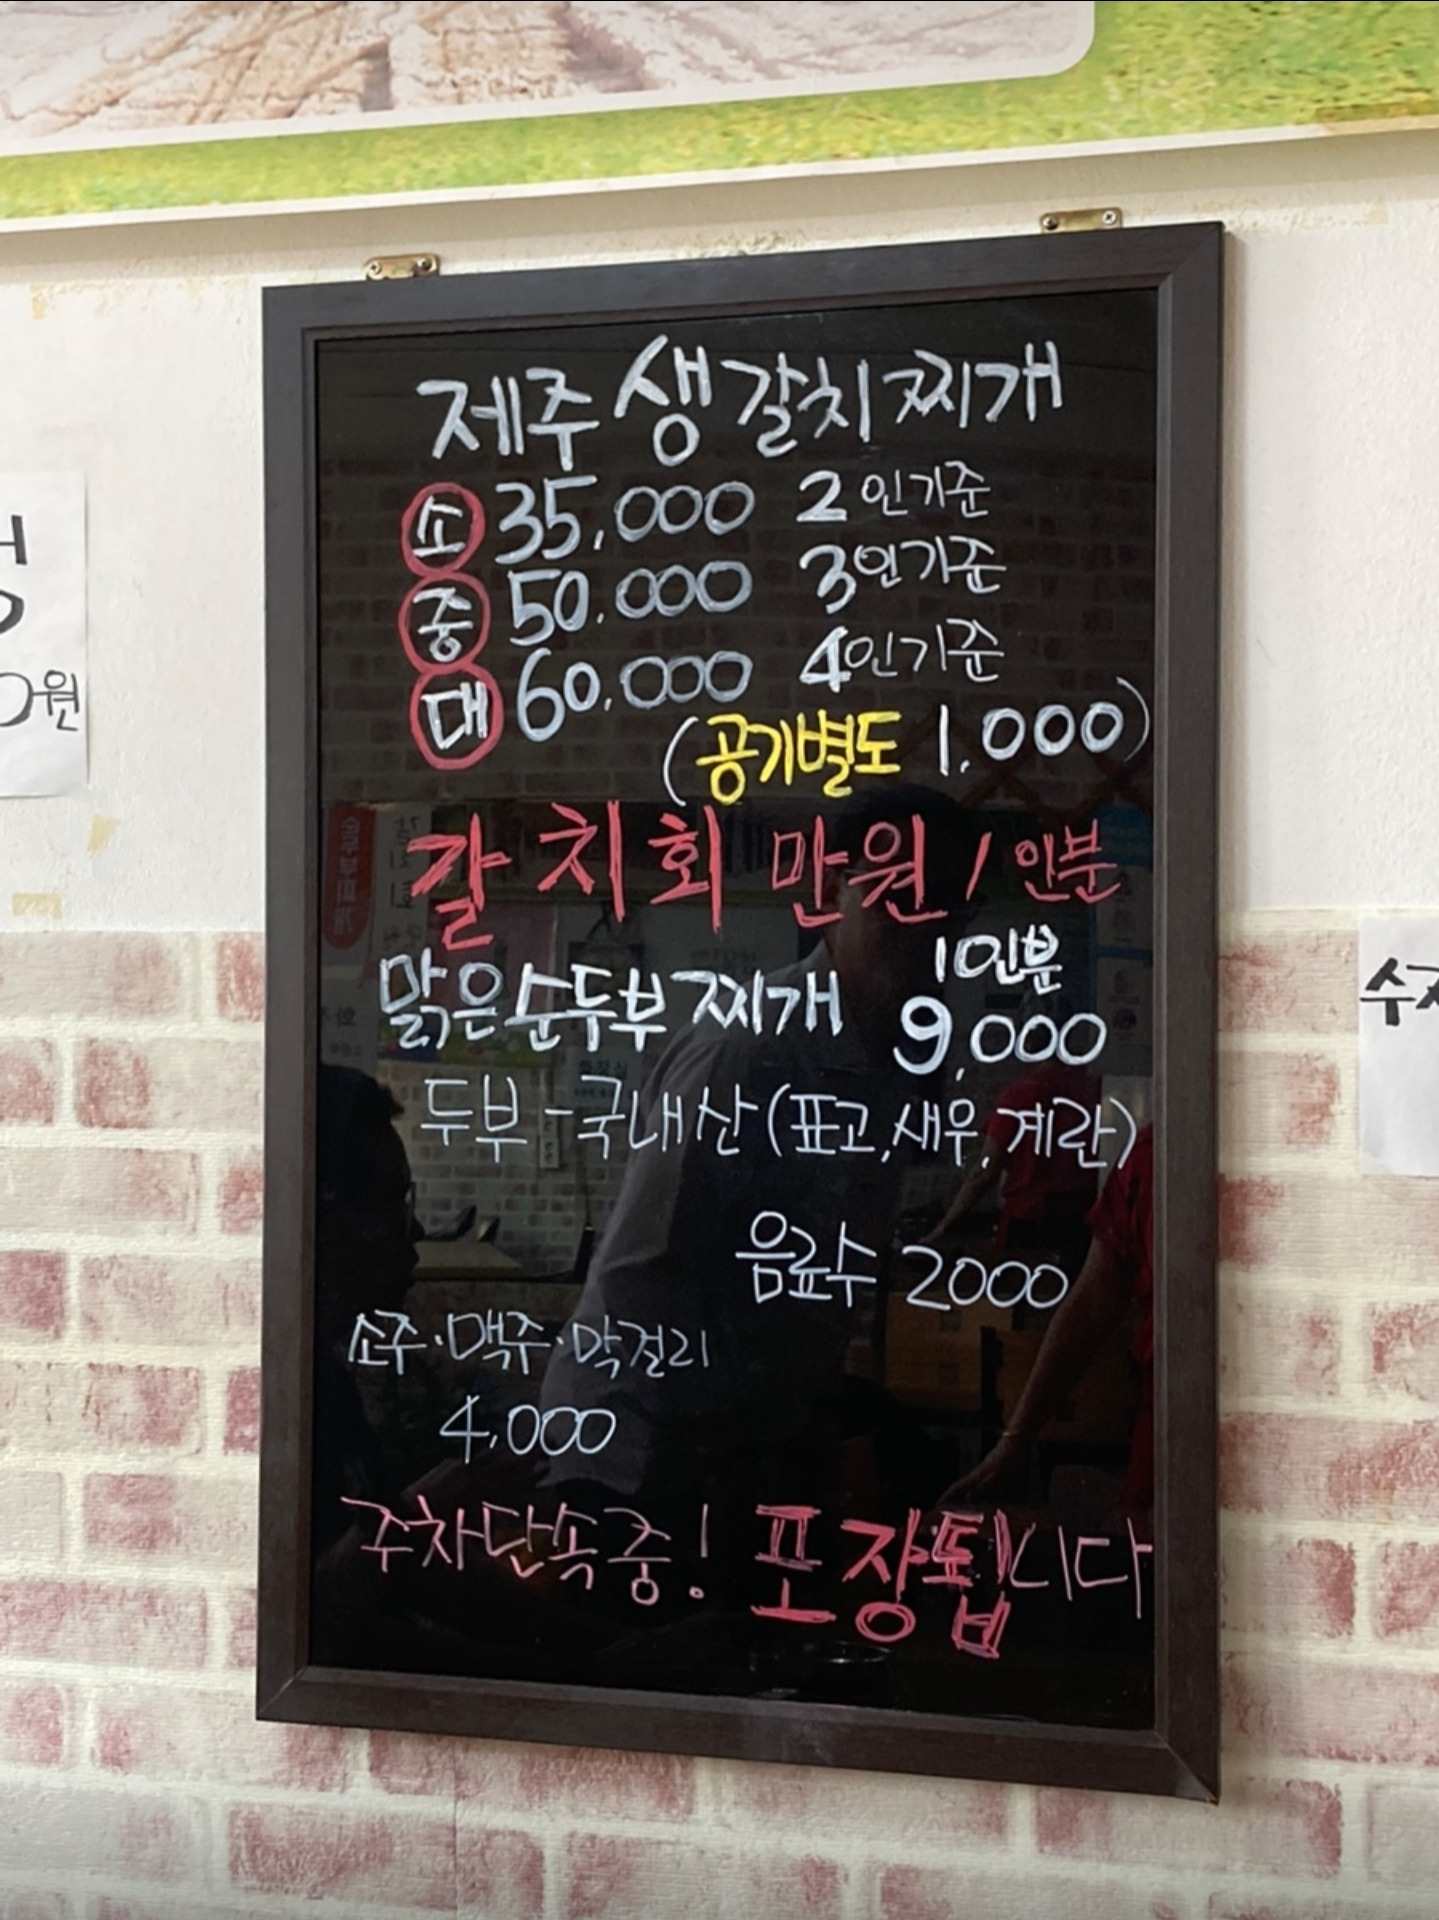 제주 생갈치찌개
소 35,000 2인기준
중 50,000 3인기준
대 60,000 4인기준
(공기별도 1,000)
갈치회 만원 / 인분
맑은순두부찌개 1인분 9,000
두부-국내산(표고,새우,계란)
음료수 2000
소주·맥주·막걸리
4,000
주차단속중! 포장됩니다
0원